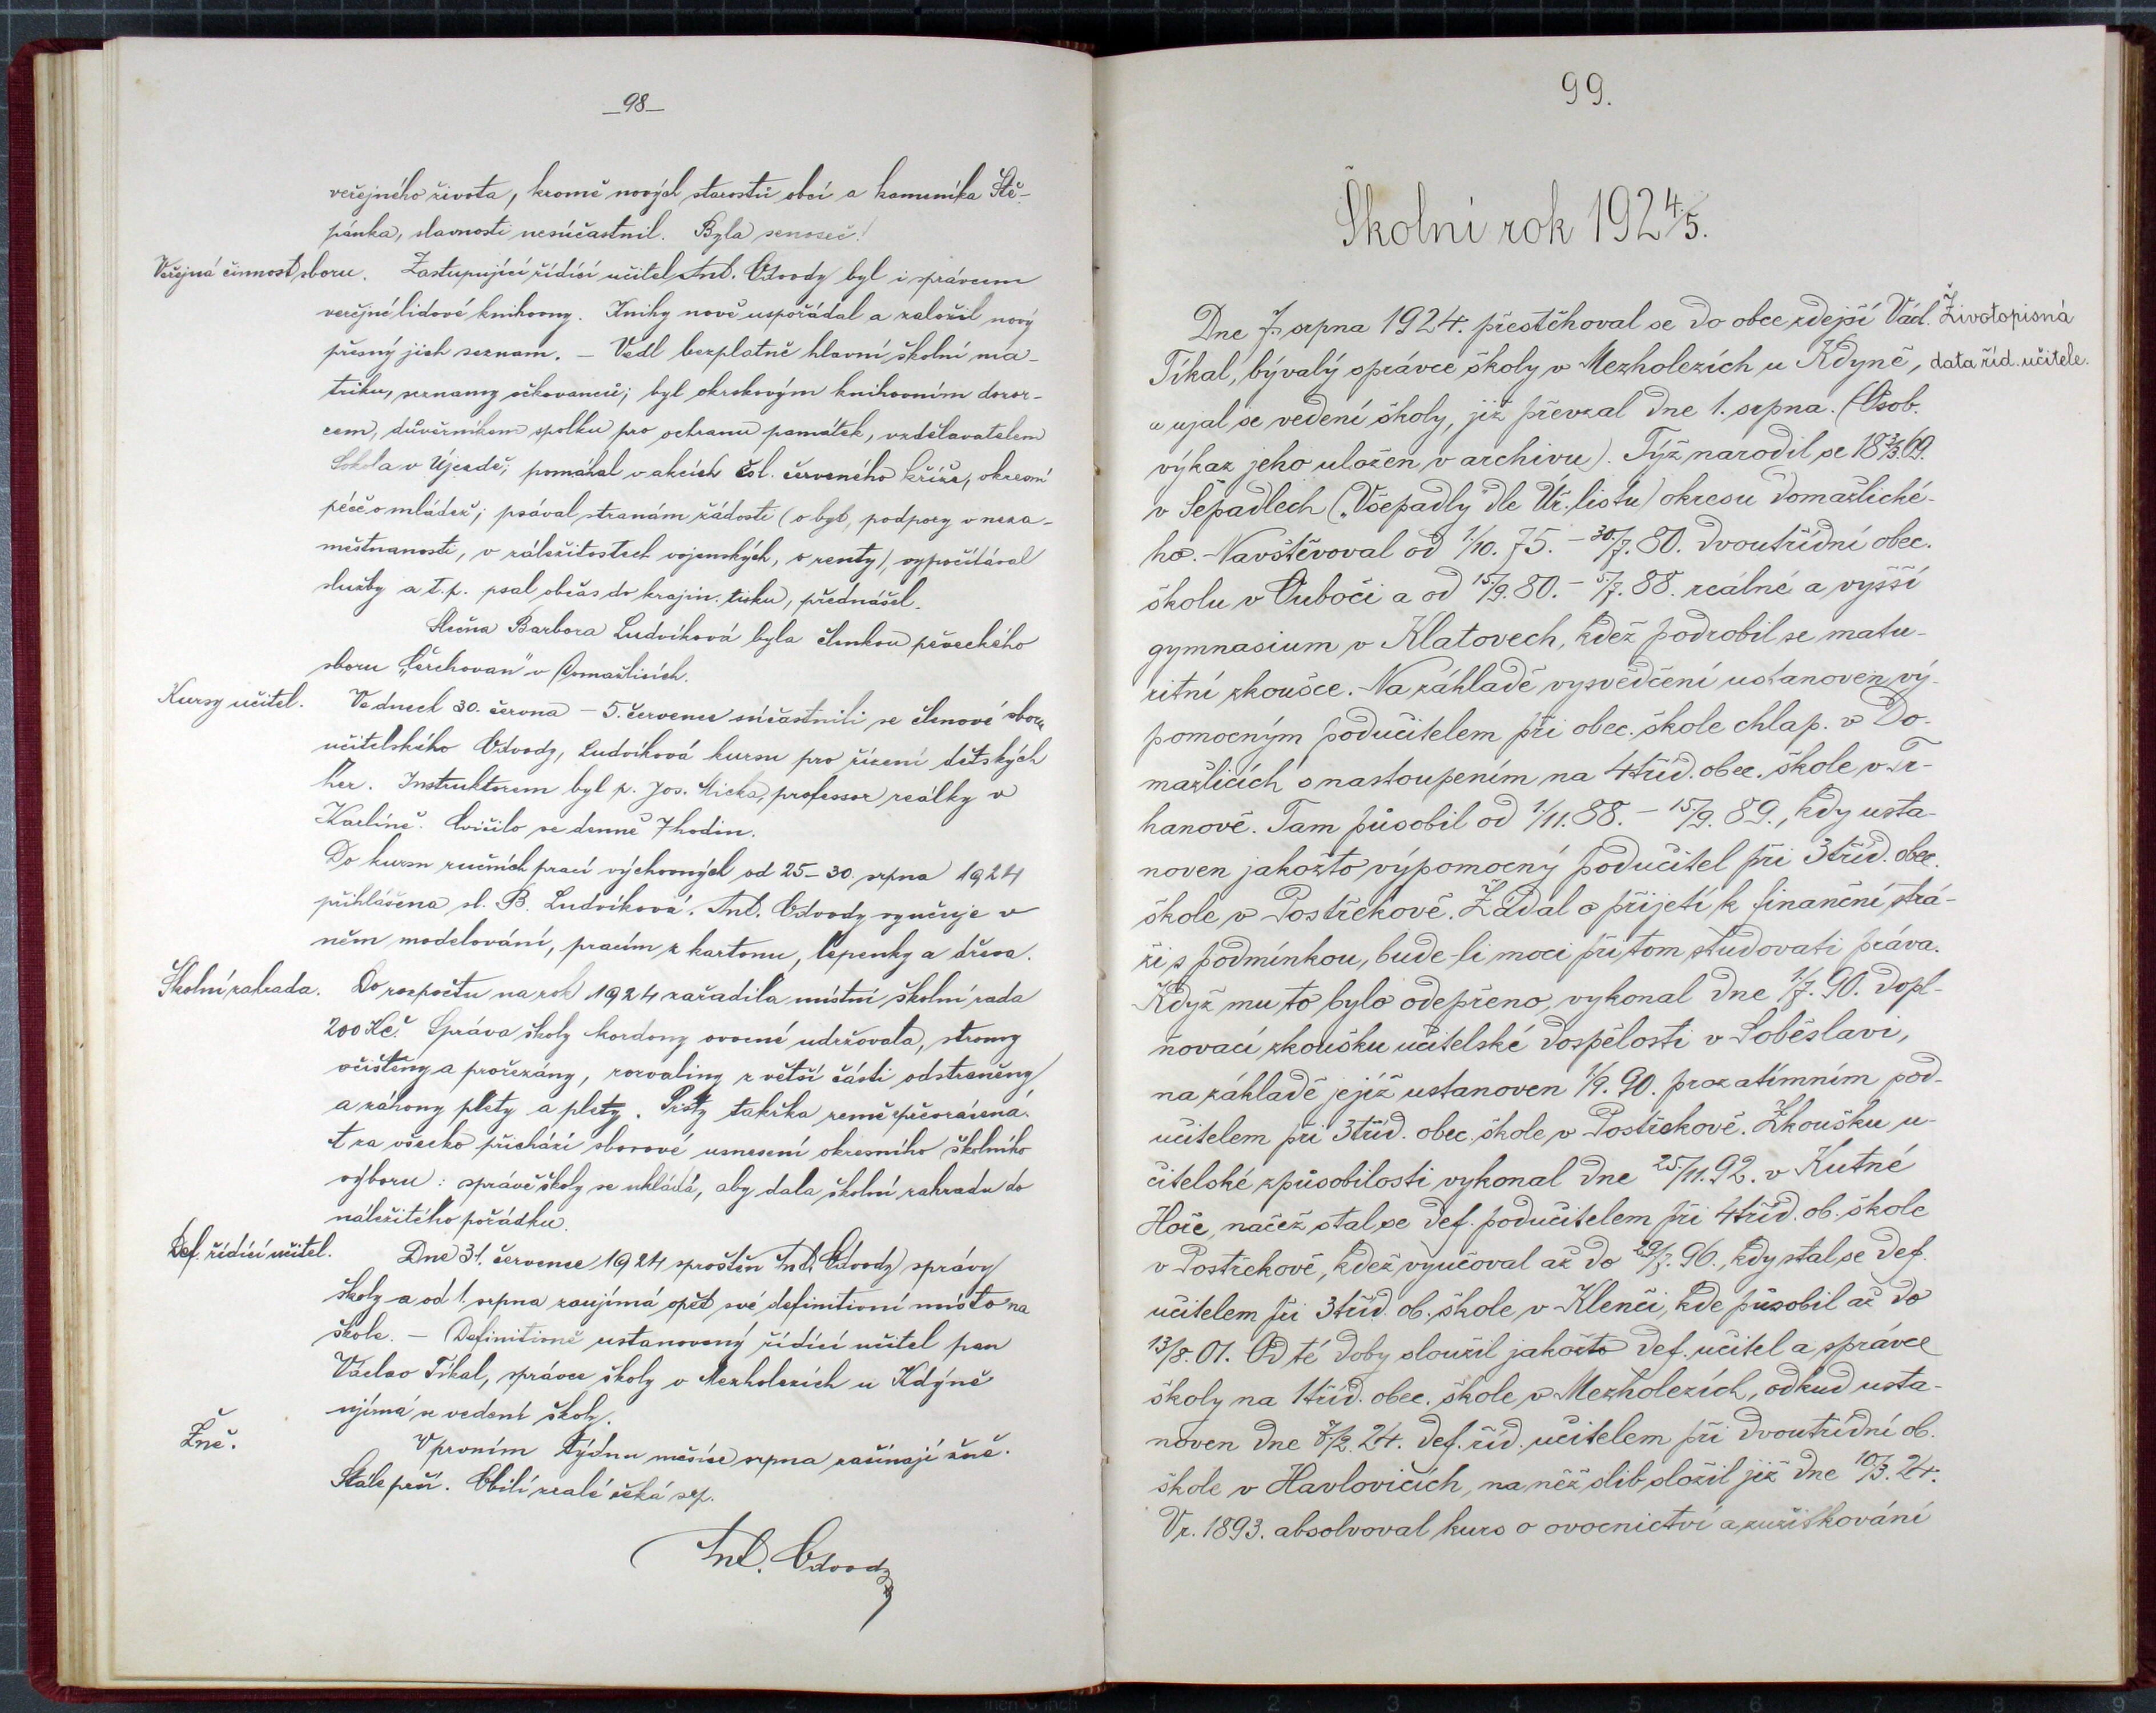 –98–
veřejného života, kromě nových starostů obcí a kameníka Ště-
pánka, slavnosti nesúčastnil. Byla senoseč!
Veřejná činnost sboru.
Zastupující řídící učitel Ant. Odvody byl i správcem
veřejné lidové knihovny. Knihy nově uspořádal a založil nový
přesný jich seznam. – Vedl bezplatně hlavní školní ma-
triku, seznamy očkovanců; byl okrskovým knihovním dozor-
cem, důvěrníkem spolku pro ochranu památek, vzdělavatelem
Sokola v Újezdě; pomáhal v akcích čsl. červeného kříže, okresní
péče o mládež; psával stranám žádosti (o byt, podpory v neza-
městnanosti, v záležitostech vojenských, o renty), vypočítával
služby a t. p. psal občas do krajin. tisku, přednášel.
Slečna Barbora Ludvíková byla členkou pěveckého
sboru „Čerchovan" v Domažlicích.
Kursy učitel.
Ve dnech 30. června – 5. července súčastnili se členové sboru
učitelského Odvody, Ludvíková kursu pro řízení dětských
her. Instruktorem byl p. Jos. Micka, professor reálky v
Karlíně. Cvičilo se denně 7 hodin.
Do kursu ručních prací výchovných od 25–30. srpna 1924
přihlášena sl. B. Ludvíková. Ant. Odvody vyučuje v
něm modelování, pracím z kartonu, lepenky a dřeva.
Školní zahrada.
Do rozpočtu na rok 1924 zařadila místní školní rada
200 Kč. Správa školy kordony ovocné udržovala, stromy
očištěny a prořezány, rozvaliny z větší části odstraněny
a záhony plety a plety. Prsty takřka země převrácená.
A za všecko přichází sborové usnesení okresního školního
výboru: správě školy se ukládá, aby dala školní zahradu do
náležitého pořádku.
Def. řídící učitel.
Dne 31. července 1924 sproštěn Ant. Odvody správy
školy a od 1. srpna zaujímá opět své definitivní místo na
škole. – Definitivně ustanovený řídící učitel pan
Václav Tikal, správce školy v Mezholezích u Kdýně
ujímá se vedení školy.
Žně.
V prvním týdnu měsíce srpna začínají žně.
Stále prší. Obilí zralé čeká sep.
Ant. Odvody
99.
Školní rok 1924/5.
Životopisná
data říd. učitele.
Dne 7. srpna 1924. přestěhoval se do obce zdejší Václ.
Tikal, bývalý správce školy v Mezholezích u Kdyně,
a ujal se vedení školy, již převzal dne 1. srpna. (Osob.
výkaz jeho uložen v archivu). Týž narodil se 18 2/3. 69.
v Šepadlech („Všepadly" dle Úř. listu) okresu domažlické-
ho. Navštěvoval od 1./10. 75. – 30./7. 80. dvoutřídní obec.
školu v Ouboči a od 15./9. 80. – 5./7. 88. reálné a vyšší
gymnasium v Klatovech, kdež podrobil se matu-
ritní zkoušce. Na základě vysvědčení ustanoven vý-
pomocným podučitelem při obec. škole chlap. v Do-
mažlicích s nastoupením na 4tříd. obec. škole v Tr-
hanově. Tam působil od 1./11. 88. – 15./9. 89., kdy usta-
noven jakožto výpomocný podučitel při 3tříd. obec.
škole v Postřekově. Žádal o přijetí k finanční strá-
ži s podmínkou, bude-li moci při tom studovati práva.
Když mu to bylo odepřeno, vykonal dne 1./7. 90. dopl-
ňovací zkoušku učitelské dospělosti v Soběslavi,
na základě jejíž ustanoven 1./9. 90. prozatímním pod-
učitelem při 3tříd. obec. škole v Postřekově. Zkoušku u-
čitelské způsobilosti vykonal dne 25./11. 92. v Kutné
Hoře, načež stal se def. podučitelem při 4tříd. ob. škole
v Postřekově, kdež vyučoval až do 29./7. 96., kdy stal se def.
učitelem při 3tříd. ob. škole v Klenčí, kde působil až do
13/8. 01. Od té doby sloužil jakožto def. učitel a správce
školy na 1tříd. obec. škole v Mezholezích, odkud usta-
noven dne 8/2. 24. def. říd. učitelem při dvoutřídní ob.
škole v Havlovicích, na něž slib složil již dne 10./3. 24.
V r. 1893. absolvoval kurs o ovocnictví a zužitkování